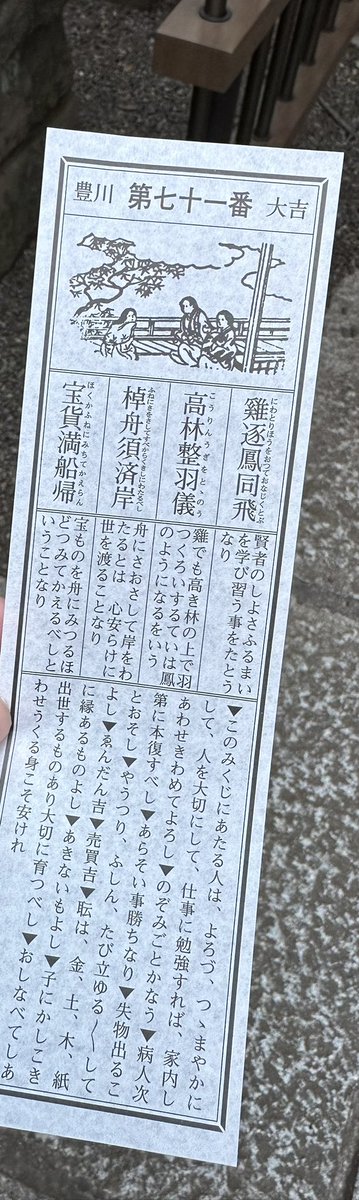 豊川 第七十一番 大吉
雞逐鳳同飛
にわとりほうをおつておなじくとぶ
高林整羽儀
こうりんうぎをとゝのう
棹舟須済岸
ふねにさをさしてすべからくきしにわたるべし
宝貨満船帰
ほくかふねにみちてかえらん
賢者のしよさふるまい
を学び習う事をたとう
なり
雞でも高き林の上で羽
つくろいするていは鳳
のようになるをいう
舟にさおさして岸をわ
たるとは 心安らけに
世を渡ることなり
宝ものを舟にみつるほ
どつみてかえるべしと
いうことなり
▼このみくじにあたる人は、よろづ、つゝまやかに
して、人を大切にして、仕事に勉強すれば、家内し
あわせきわめてよろし▼のぞみごとかなう▼病人次
第に本復すべし▼あらそい事勝ちなり▼失物出るこ
とおそし▼やうつり、ふしん、たび立ゆる〱して
よし▼ゑんだん吉▼売買吉▼耘は、金、土、木、紙
に縁あるものよし▼あきないもよし▼子にかしこき
出世するものあり大切に育つべし▼おしなべてしあ
わせうくる身こそ安けれ